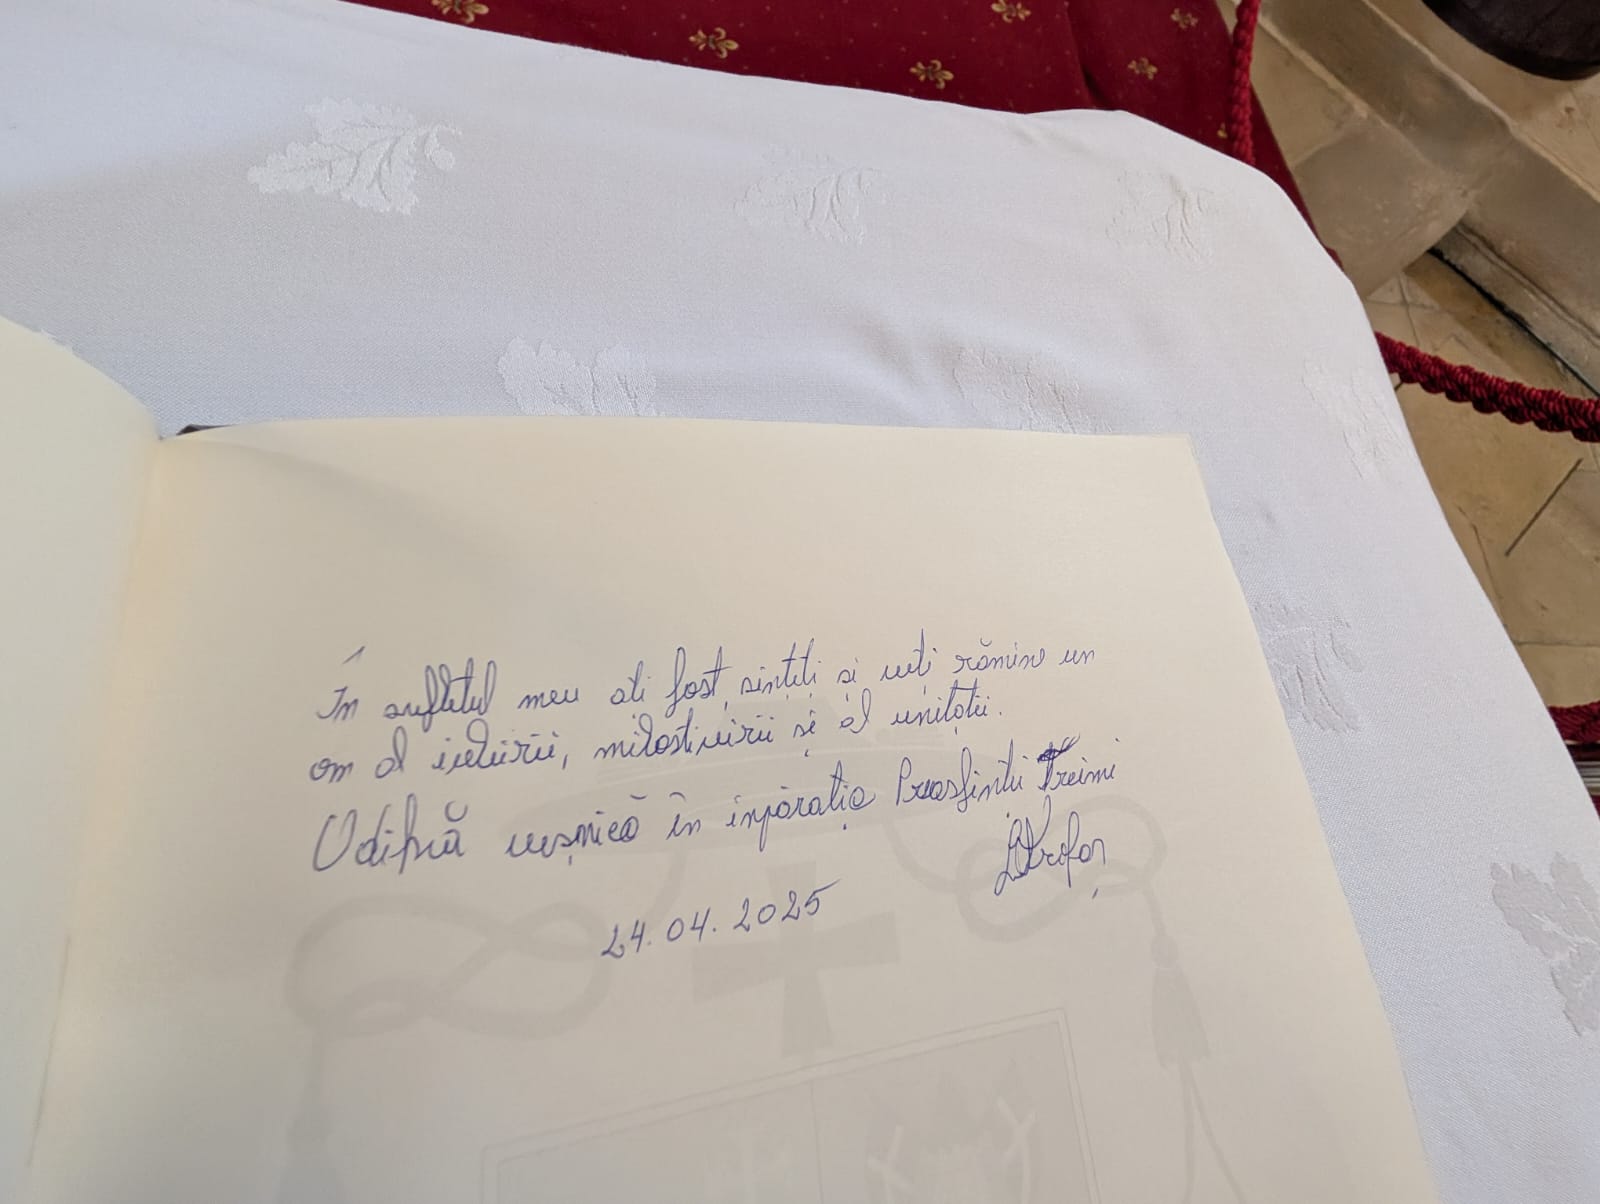 În sufletul meu ați fost, sinteți și veți rămîne un
om al iubirii, milostivirii și al unității.
Odihnă veșnică în înpărăția Preasfintei Treimi
24.04.2025